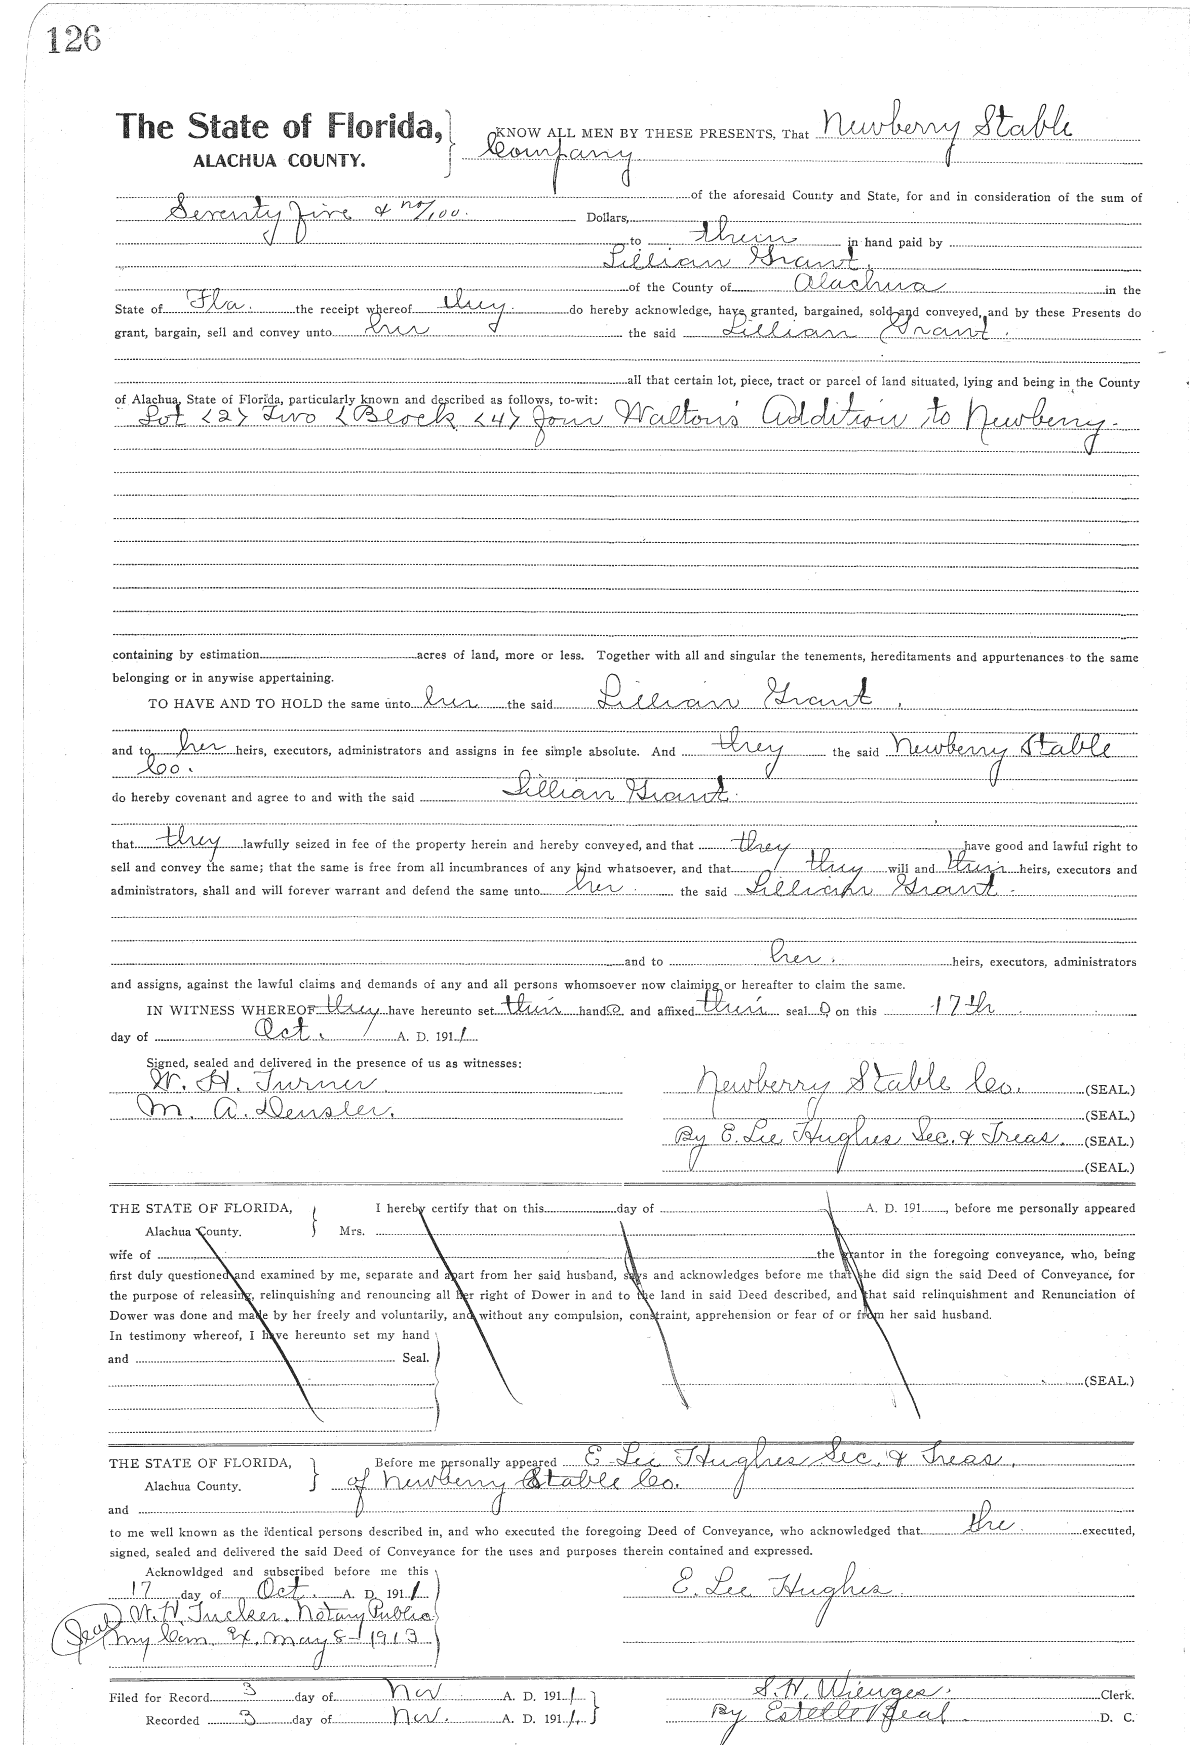 126
The State of Florida,
ALACHUA COUNTY.
KNOW ALL MEN BY THESE PRESENTS, That Newberry Stable
Company
of the aforesaid County and State, for and in consideration of the sum of
Seventy five & no/100. Dollars,
to them in hand paid by
Lillian Grant,
of the County of Alachua in the
State of Fla. the receipt whereof they do hereby acknowledge, have granted, bargained, sold and conveyed, and by these Presents do
grant, bargain, sell and convey unto her the said Lillian Grant.
all that certain lot, piece, tract or parcel of land situated, lying and being in the County
of Alachua, State of Florida, particularly known and described as follows, to-wit:
Lot <2> Two <Block <4> four Walton's Addition to Newberry.
containing by estimation acres of land, more or less. Together with all and singular the tenements, hereditaments and appurtenances to the same
belonging or in anywise appertaining.
TO HAVE AND TO HOLD the same unto her the said Lillian Grant,
and to her heirs, executors, administrators and assigns in fee simple absolute. And they the said Newberry Stable
Co.
do hereby covenant and agree to and with the said Lillian Grant.
that they lawfully seized in fee of the property herein and hereby conveyed, and that they have good and lawful right to
sell and convey the same; that the same is free from all incumbrances of any kind whatsoever, and that they will and their heirs, executors and
administrators, shall and will forever warrant and defend the same unto her the said Lillian Grant.
and to her. heirs, executors, administrators
and assigns, against the lawful claims and demands of any and all persons whomsoever now claiming or hereafter to claim the same.
IN WITNESS WHEREOF they have hereunto set their hands and affixed their seal s on this 17th
day of Oct. A. D. 1911
Signed, sealed and delivered in the presence of us as witnesses:
W. H. Turner
M. A. Densler.
Newberry Stable Co. (SEAL.)
(SEAL.)
By E. Lee Hughes Sec. & Treas. (SEAL.)
(SEAL.)
THE STATE OF FLORIDA,
Alachua County.
I hereby certify that on this day of A. D. 191 , before me personally appeared
Mrs.
wife of the grantor in the foregoing conveyance, who, being
first duly questioned and examined by me, separate and apart from her said husband, says and acknowledges before me that she did sign the said Deed of Conveyance, for
the purpose of releasing, relinquishing and renouncing all her right of Dower in and to the land in said Deed described, and that said relinquishment and Renunciation of
Dower was done and made by her freely and voluntarily, and without any compulsion, constraint, apprehension or fear of or from her said husband.
In testimony whereof, I have hereunto set my hand
and Seal.
(SEAL.)
THE STATE OF FLORIDA,
Alachua County.
Before me personally appeared E Lee Hughes Sec. & Treas.
of Newberry Stable Co.
and
to me well known as the identical persons described in, and who executed the foregoing Deed of Conveyance, who acknowledged that the executed,
signed, sealed and delivered the said Deed of Conveyance for the uses and purposes therein contained and expressed.
Acknowldged and subscribed before me this
17 day of Oct. A. D. 1911
W. H. Tucker. Notary Public
Seal
my Com. Ex. May 8-1913
E. Lee Hughes.
Filed for Record 3 day of Nov A. D. 1911
Recorded 3 day of Nov. A. D. 1911.
S. H. Wienges. Clerk.
By Estelle Neal D. C.